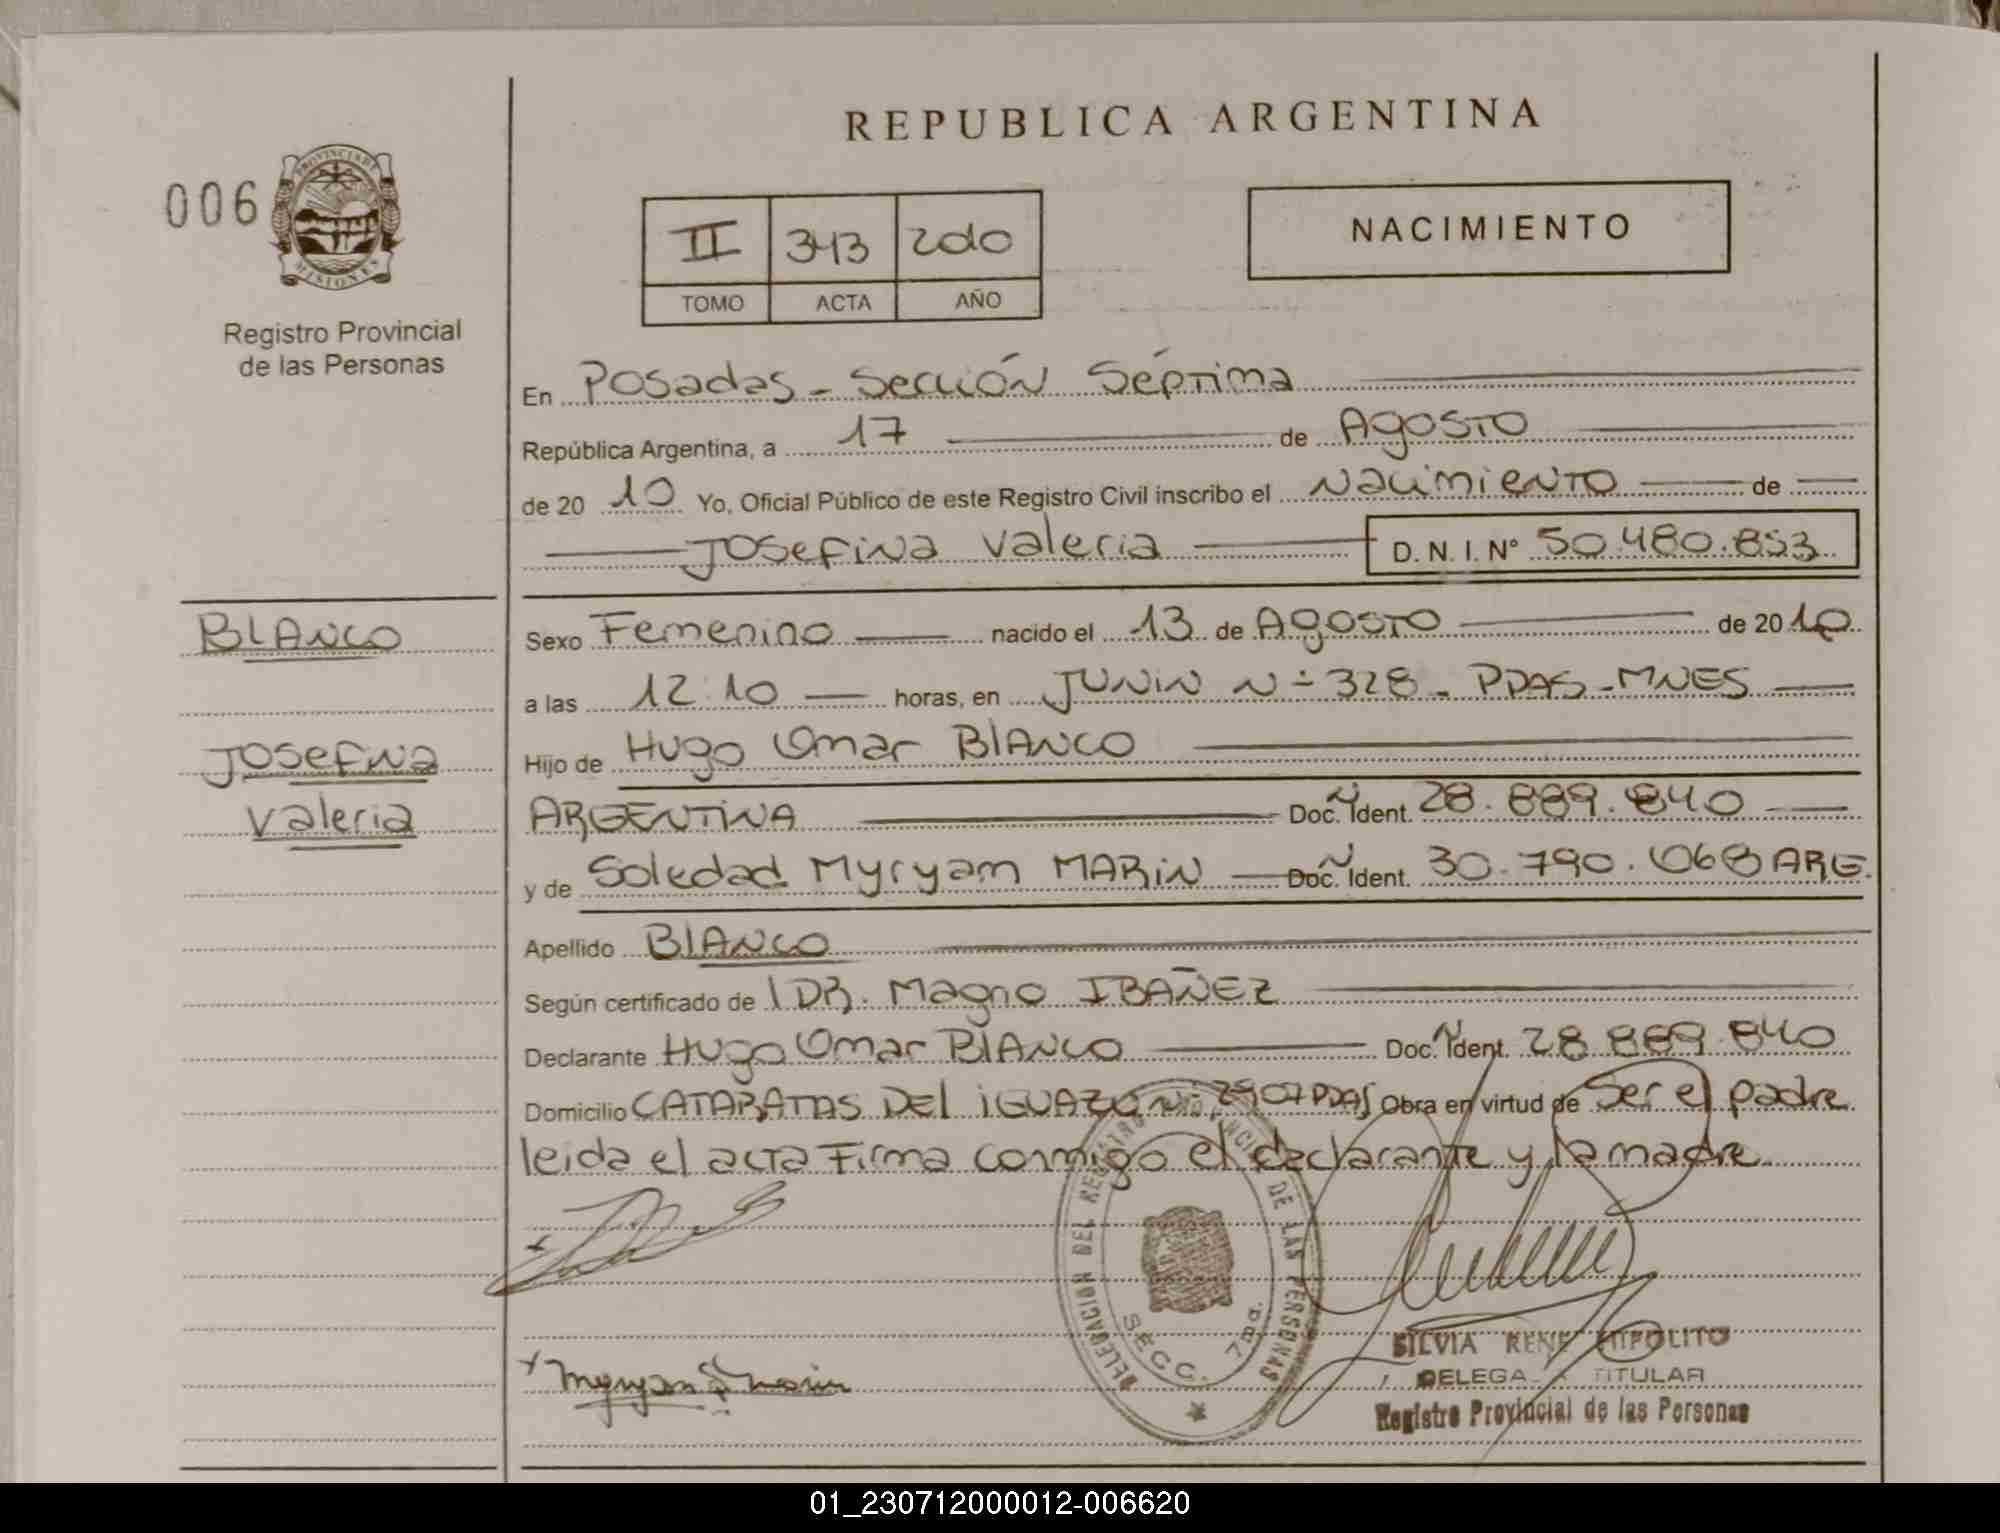 REPUBLICA ARGENTINA
006
PROVINCIA DE
MISIONES
Registro Provincial
de las Personas
II 343 2010
TOMO ACTA AÑO
NACIMIENTO
En Posadas - Sección Séptima
República Argentina, a 17 de Agosto
de 20 10 Yo, Oficial Público de este Registro Civil inscribo el Nacimiento de
Josefina Valeria D. N. I. Nº 50.480.853
BLANCO
Sexo Femenino nacido el 13 de Agosto de 20 10
a las 12:10 horas, en JUNIN Nº 328 - PDAS - MNES
Josefina
Hijo de Hugo Omar BLANCO
Valeria
ARGENTINA Doc. Ident. 28.889.840
y de Soledad Myryam MARIN Doc. Ident. 30.790.068 ARG.
Apellido BLANCO
Según certificado de DR. Magno IBAÑEZ
Declarante Hugo Omar BLANCO Doc. Ident. 28.889.840
Domicilio CATARATAS DEL IGUAZU Nº 2907 PDAS Obra en virtud de Ser el padre
leida el acta Firma conmigo el declarante y la madre
DELEGACION DEL REGISTRO PROVINCIAL DE LAS PERSONAS
SECC. 7ma.
Myryam S Marin
SILVIA RENE HIPOLITO
DELEGADA TITULAR
Registro Provincial de las Personas
01_230712000012-006620